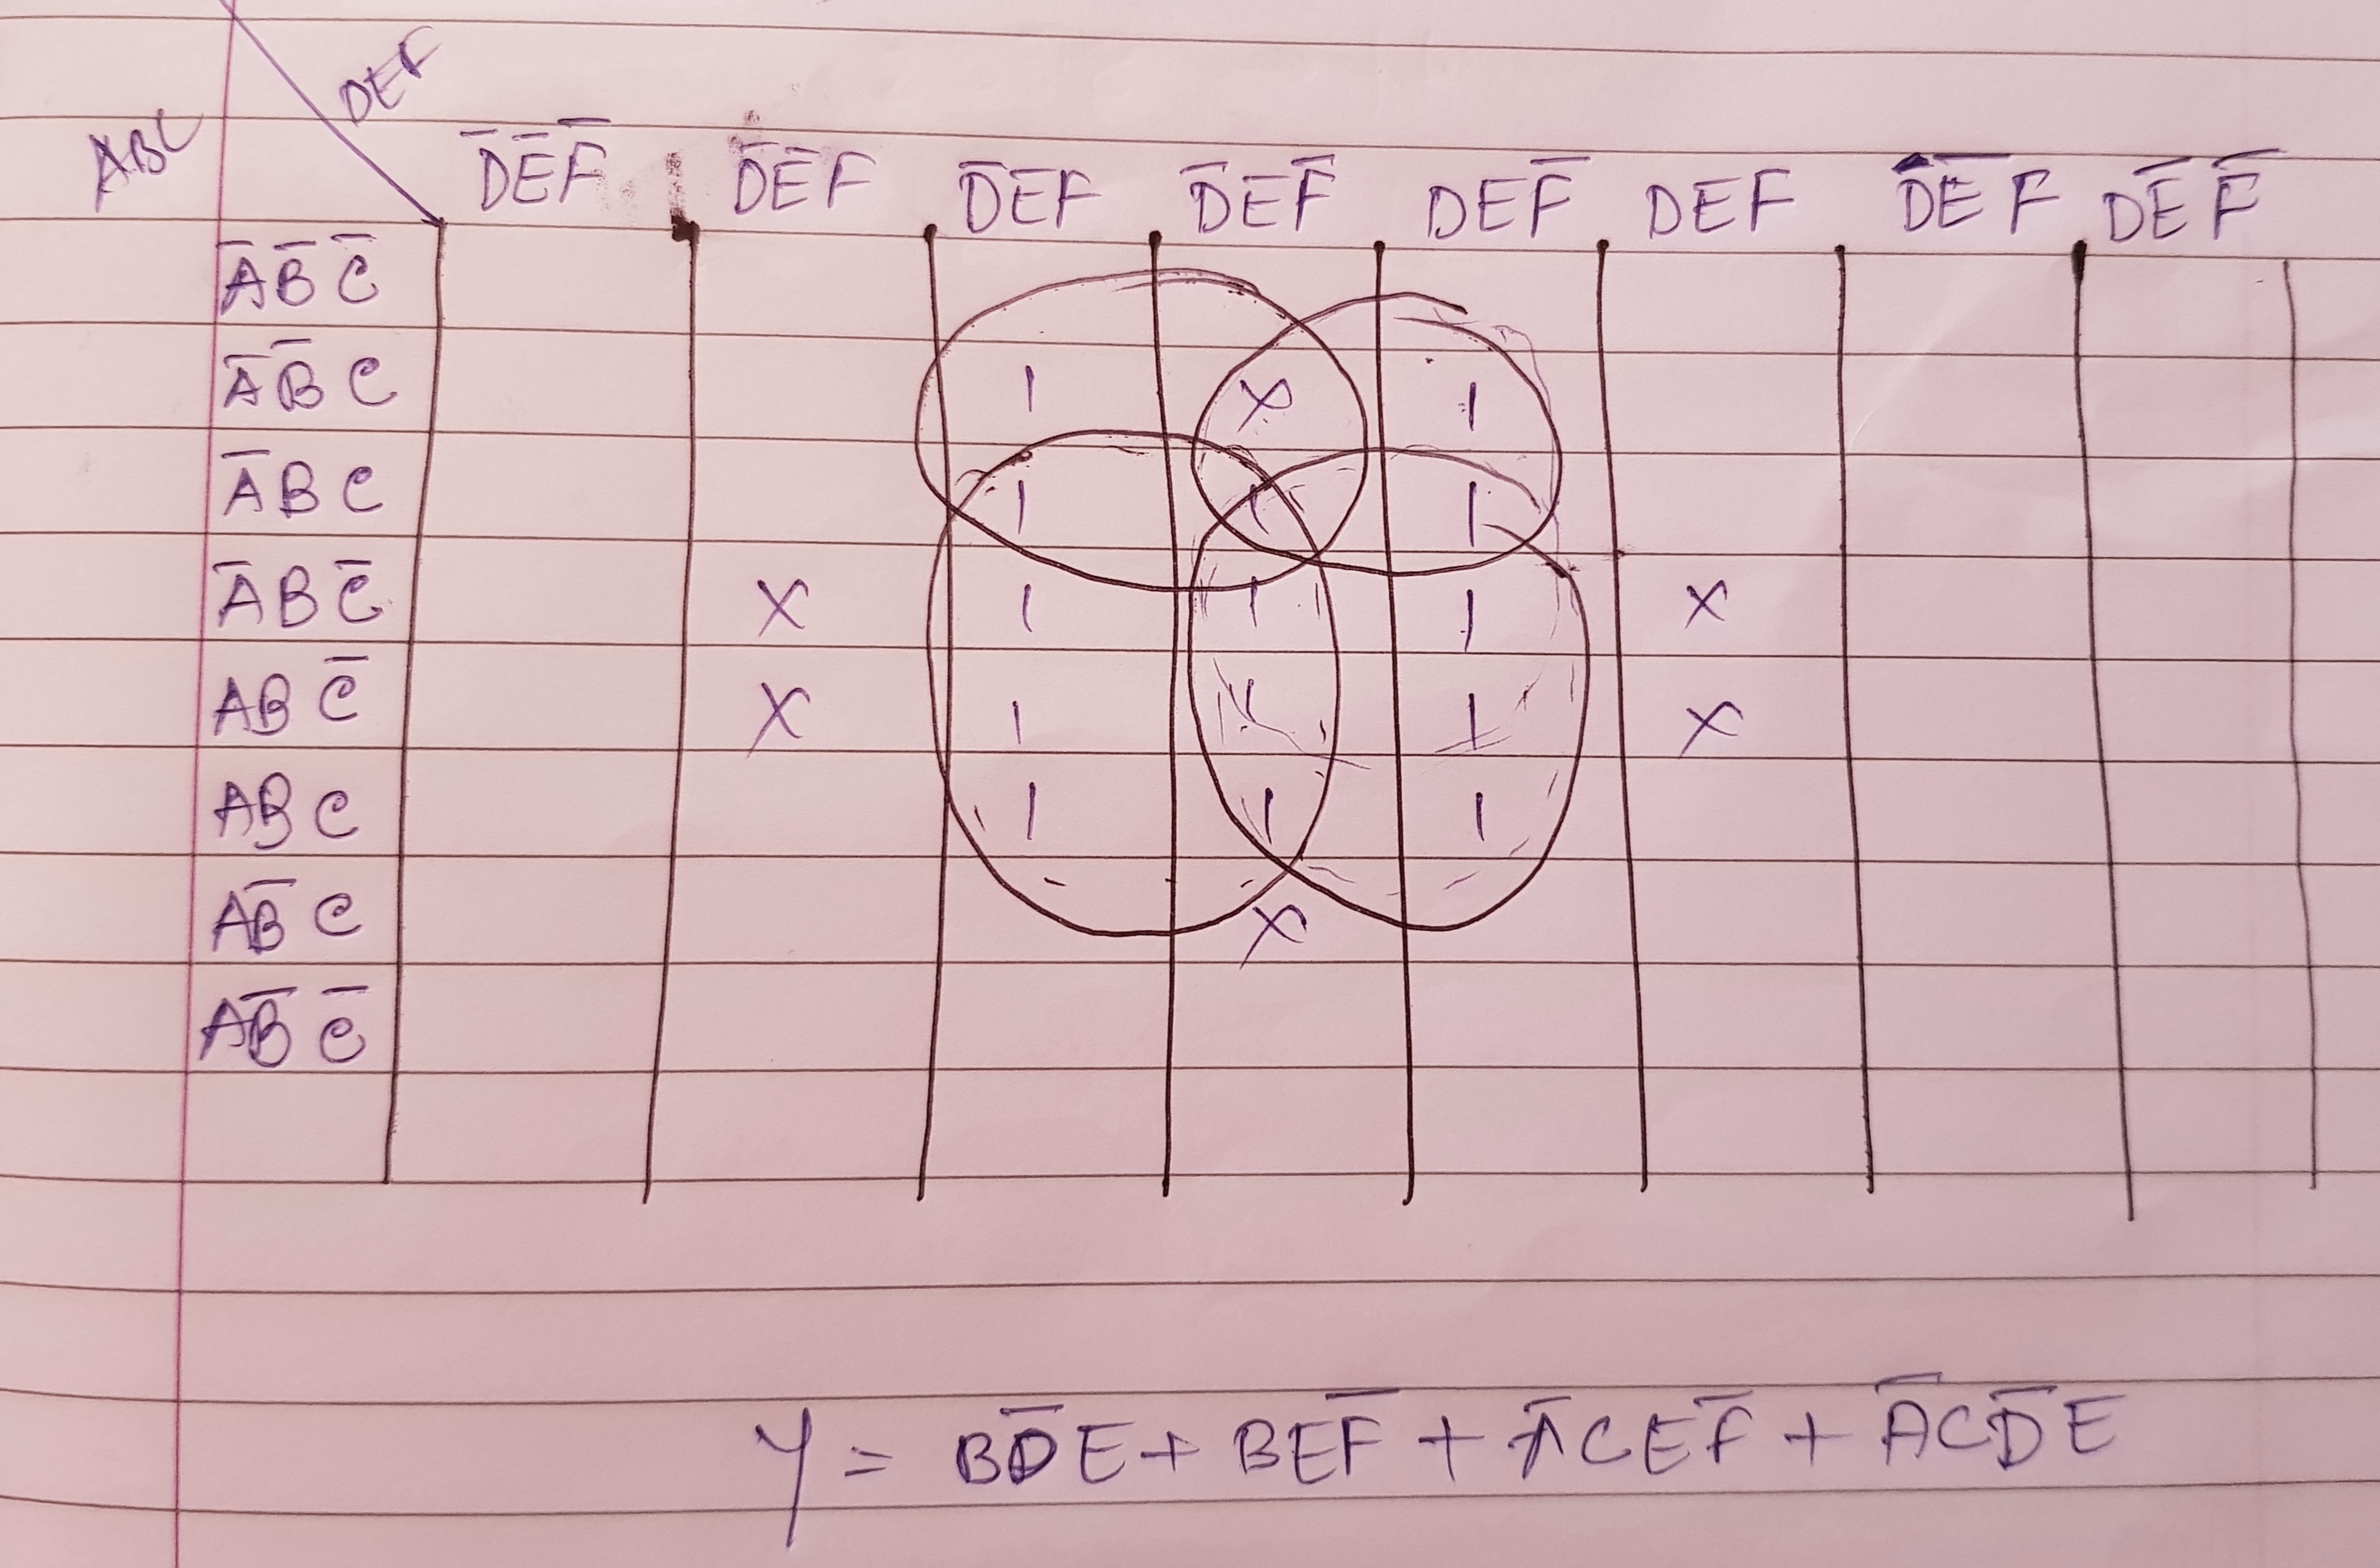 ABC DEF D̅E̅F̅ D̅E̅F D̅EF D̅EF̅ DEF̅ DEF DE̅F DE̅F̅
A̅B̅C̅
A̅B̅C 1 X 1
A̅BC 1 1 1
A̅BC̅ X 1 1 1 X
ABC̅ X 1 1 1 X
ABC 1 1 1
AB̅C X
AB̅C̅
Y = BD̅E + BEF̅ + A̅CEF̅ + A̅CD̅E